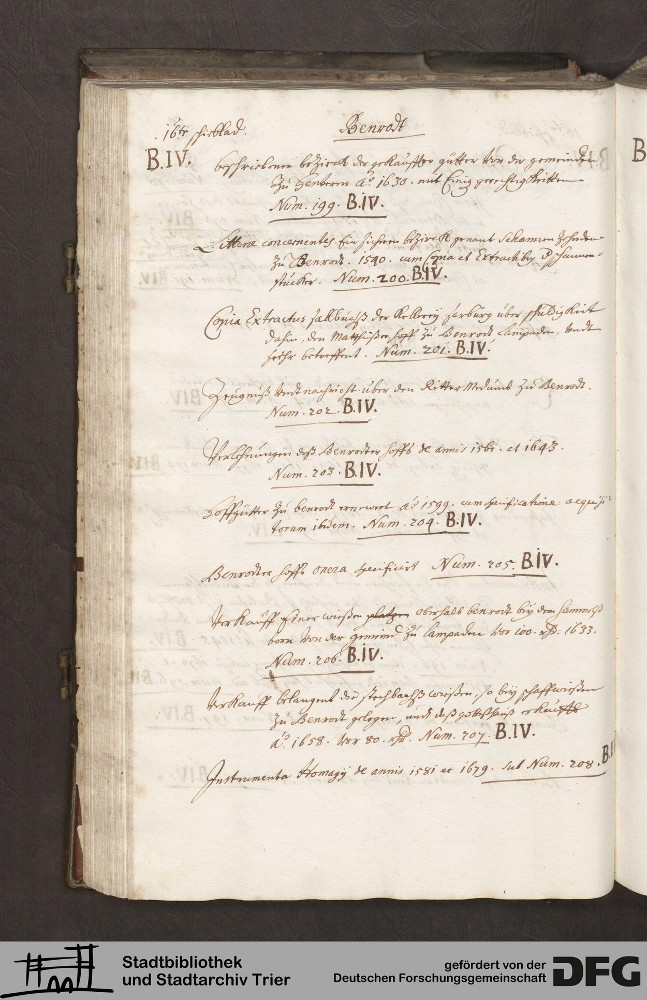 16te Schieblad. Benrodt
B.IV. beschriebener bezirck der gekauffter gütter von der gemeinden
zu Zenteren Aō 1630. mit Einig gerechtigkeitten
Num. 199. B.IV.
Litterae concernentes Ein sicheren bezirck genant Schannen Zehnden
zu Benrodt. 1540. cum Copia et Extract
stücker. Num. 200. B.IV.
Copia Extractus saalbuchß der Kellerey Sarburg über schuldigkeit
dahin, den Mattheißer hoff zu Benrodt Campaden, undt
betreffent. Num. 201. B.IV.
Zeugnuß undt nachricht über den Ritter Medumb zu Benrodt.
Num. 202. B.IV.
Verlehnungen deß Benrodter hoffs de annis 1561. et 1643.
Num. 203. B.IV.
Hoffgütter zu benrodt ernewert aō 1599. cum specificatione acquisi-
torum ibidem. Num. 204. B.IV.
Benrodter hoffs onera specificirt Num. 205. B.IV.
Verkauff Einer wießen oberhalb benrodt bey dem
born von der gemeind zu Campaden vor 100. rthr. 1633.
Num. 206. B.IV.
Verkauff belangent die wießen, so bey schaffwießen
zu Benrodt gelegen, undt daß gotteßhauß erkaufft
aō 1658. vor 80. rthr. Num. 207. B.IV.
Instrumenta Homagÿ de annis 1581 et 1679. sub Num. 208. B.
B
Stadtbibliothek
und Stadtarchiv Trier
gefördert von der
Deutschen Forschungsgemeinschaft
DFG